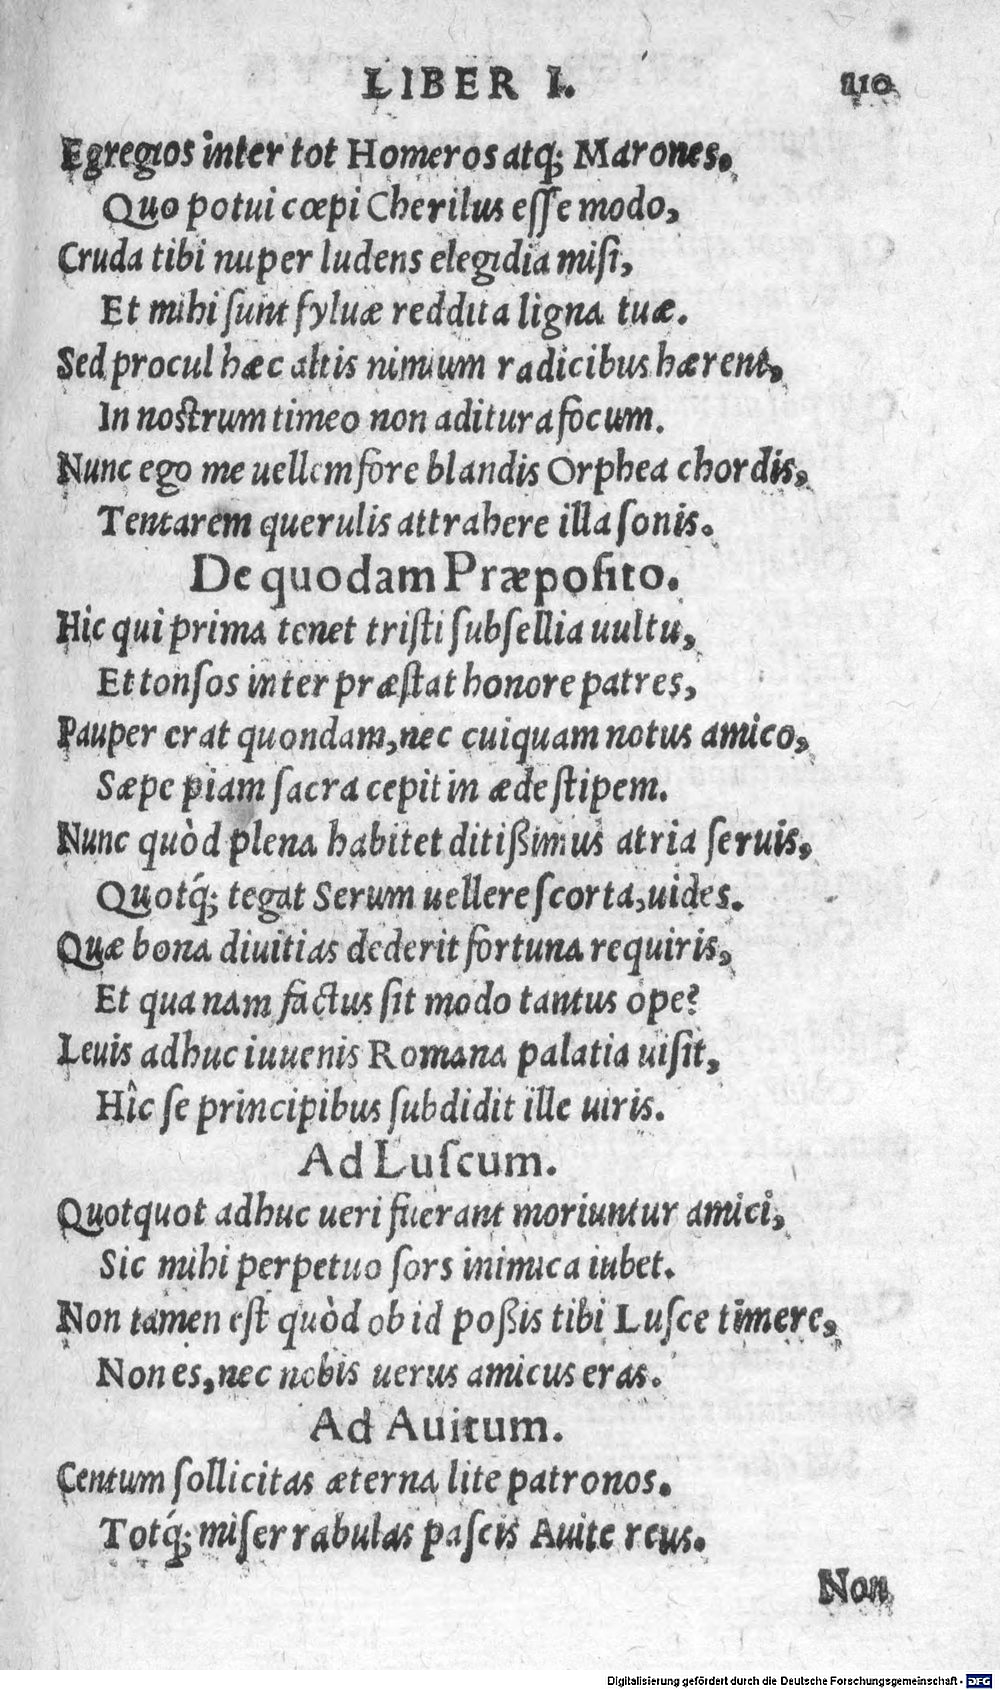 LIBER I. 210
Egregios inter tot Homeros atq́; Marones.
Quo potui cœpi Cherilus eſſe modo,
Cruda tibi nuper ludens elegidia miſi,
Et mihi ſunt ſyluæ reddita ligna tuæ.
Sed procul hæc altis nimium radicibus hærent,
In noſtrum timeo non aditura focum.
Nunc ego me uellem fore blandis Orphea chordis,
Tentarem querulis attrahere illa ſonis.
De quodam Præpoſito.
Hic qui prima tenet triſti ſubſellia uultu,
Et tonſos inter præſtat honore patres,
Pauper erat quondam, nec cuiquam notus amico,
Sæpe piam ſacra cepit in æde ſtipem.
Nunc quòd plena habitet ditißimus atria ſeruis,
Quotq́; tegat Serum uellere ſcorta, uides.
Quæ bona diuitias dederit fortuna requiris,
Et qua nam factus ſit modo tantus ope?
Leuis adhuc iuuenis Romana palatia uiſit,
Hîc ſe principibus ſubdidit ille uiris.
Ad Luſcum.
Quotquot adhuc ueri fuerant moriuntur amici,
Sic mihi perpetuo ſors inimica iubet.
Non tamen eſt quòd ob id poßis tibi Luſce timere,
Non es, nec nobis uerus amicus eras.
Ad Auitum.
Centum ſollicitas æterna lite patronos.
Totq́; miſer rabulas paſcis Auite reus.
Non
Digitalisierung gefördert durch die Deutsche Forschungsgemeinschaft - DFG